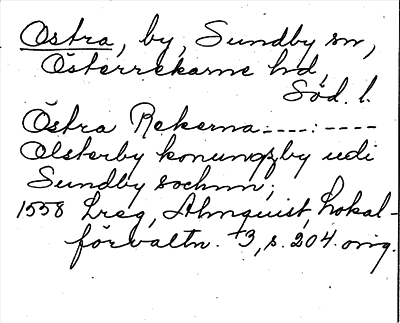 Ostra, by, Sundby sn,
Österrekarne hd,
Söd. l.
Östra Rekerna----:----
Olsterby konungzby udi
Sundby sochnn;
1558 Lreg, Almquist, Lokal-
förvaltn. +3, s. 204. orig.